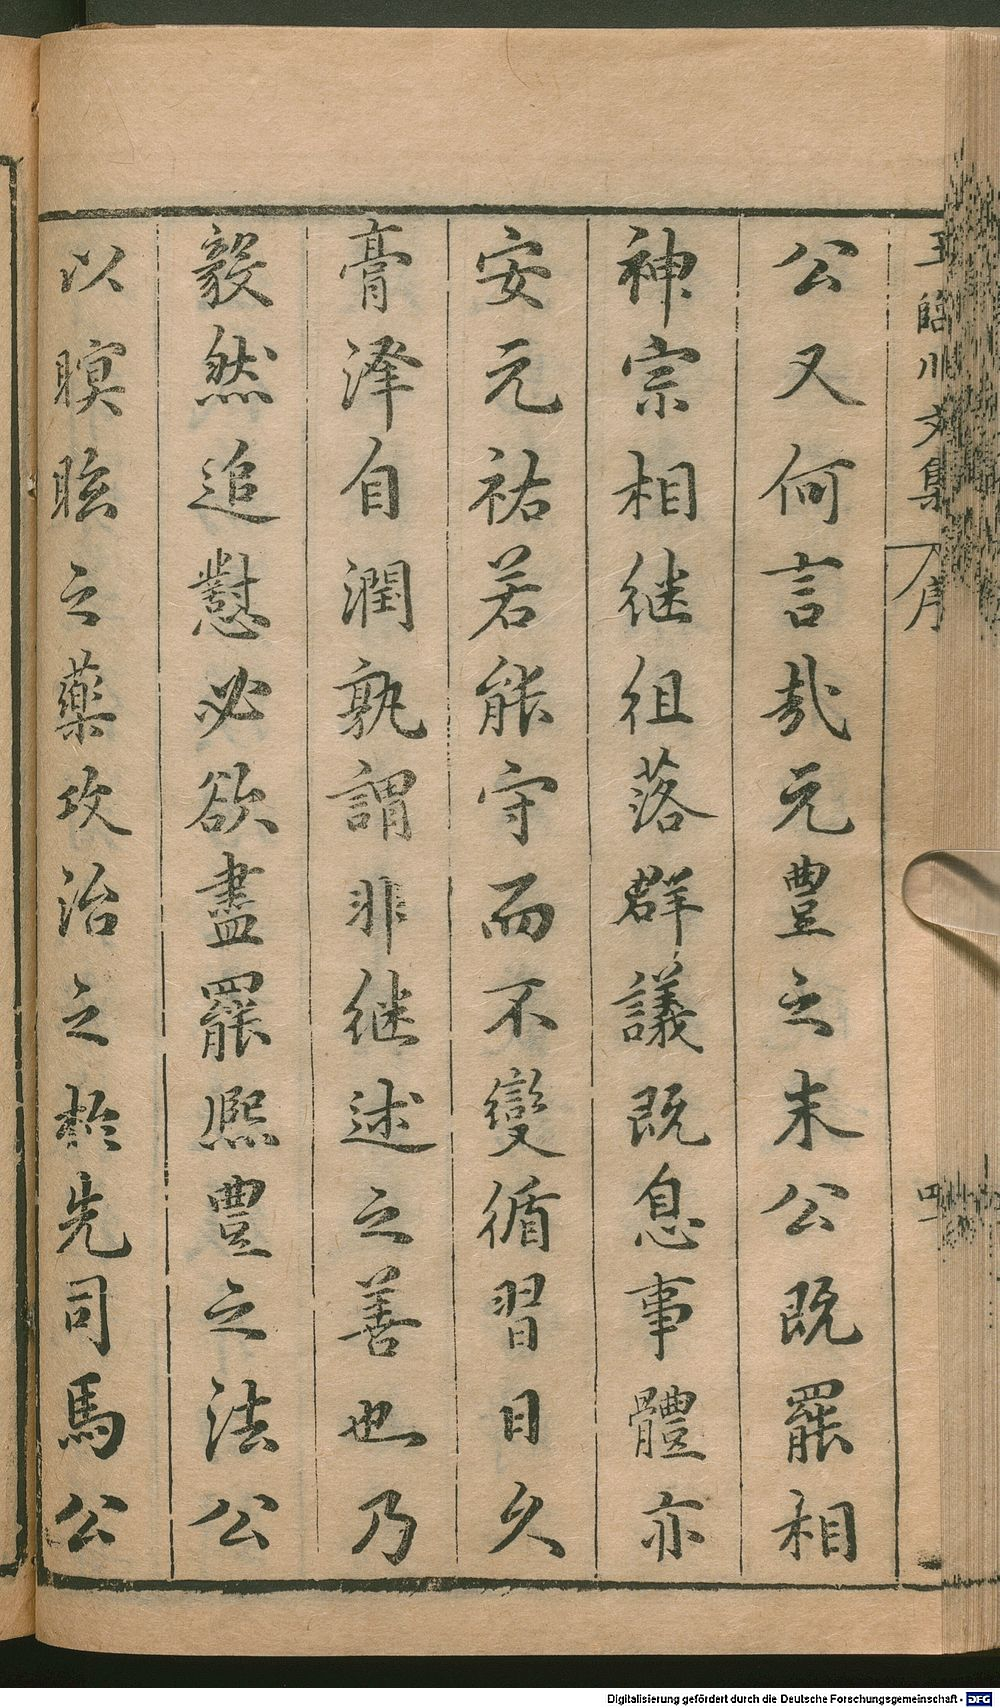 王臨川文集
序
四
公又何言哉元豊之末公既罷相
神宗相继徂落群議既息事體亦
安元祐若能守而不變循習日久
膏澤自潤孰謂非继述之善也乃
毅然追懟必欲盡罷熙豊之法公
以瞑眩之藥攻治之於先司馬公
Digitalisierung gefördert durch die Deutsche Forschungsgemeinschaft - DFG